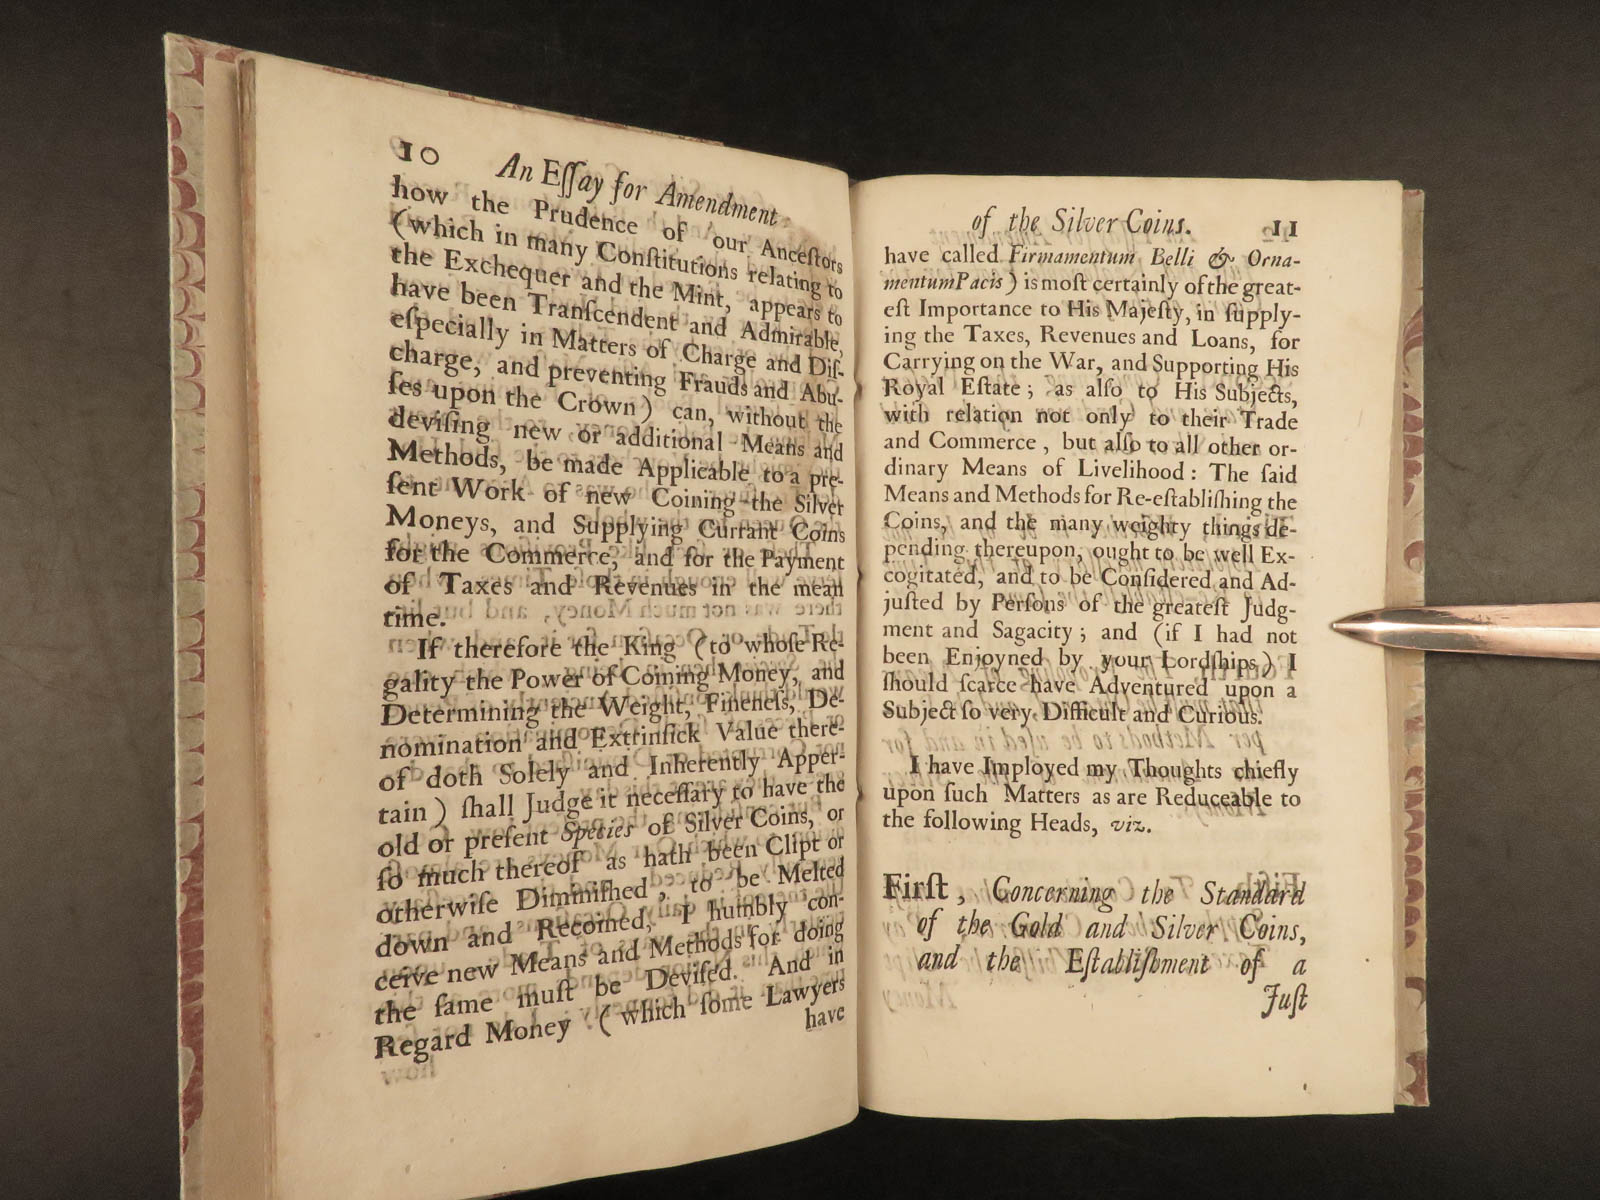 10
An Eſſay for Amendment
how the Prudence of our Anceſtors
(which in many Conſtitutions relating to
the Exchequer and the Mint, appears to
have been Tranſcendent and Admirable,
eſpecially in Matters of Charge and Diſ-
charge, and preventing Frauds and Abu-
ſes upon the Crown) can, without the
deviſing new or additional Means and
Methods, be made Applicable to a pre-
ſent Work of new Coining the Silver
Moneys, and Supplying Currant Coins
for the Commerce, and for the Payment
of Taxes and Revenues in the mean
time.
If therefore the King (to whoſe Re-
gality the Power of Coining Money, and
Determining the Weight, Fineneſs, De-
nomination and Extrinſick Value there-
of doth Solely and Inherently Apper-
tain) ſhall Judge it neceſſary to have the
old or preſent Species of Silver Coins, or
ſo much thereof as hath been Clipt or
otherwiſe Diminiſhed, to be Melted
down and Recoined, I humbly con-
ceive new Means and Methods for doing
the ſame muſt be Deviſed. And in
Regard Money (which ſome Lawyers
have
of the Silver Coins. 11
have called Firmamentum Belli & Orna-
mentum Pacis) is moſt certainly of the great-
eſt Importance to His Majeſty, in ſupply-
ing the Taxes, Revenues and Loans, for
Carrying on the War, and Supporting His
Royal Eſtate; as alſo to His Subjects,
with relation not only to their Trade
and Commerce, but alſo to all other or-
dinary Means of Livelihood: The ſaid
Means and Methods for Re-eſtabliſhing the
Coins, and the many weighty things de-
pending thereupon, ought to be well Ex-
cogitated, and to be Conſidered and Ad-
juſted by Perſons of the greateſt Judg-
ment and Sagacity; and (if I had not
been Enjoyned by your Lordſhips) I
ſhould ſcarce have Adventured upon a
Subject ſo very Difficult and Curious.
I have Imployed my Thoughts chiefly
upon ſuch Matters as are Reduceable to
the following Heads, viz.
Firſt, Concerning the Standard
of the Gold and Silver Coins,
and the Eſtabliſhment of a
Juſt